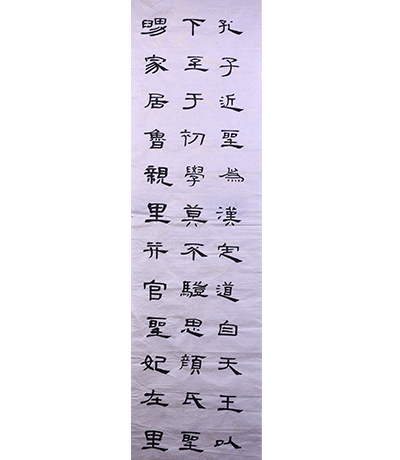 孔子近聖為漢定道自天王以
下至于初學莫不驥思顏氏聖
舅家居魯親里并官聖妃在里